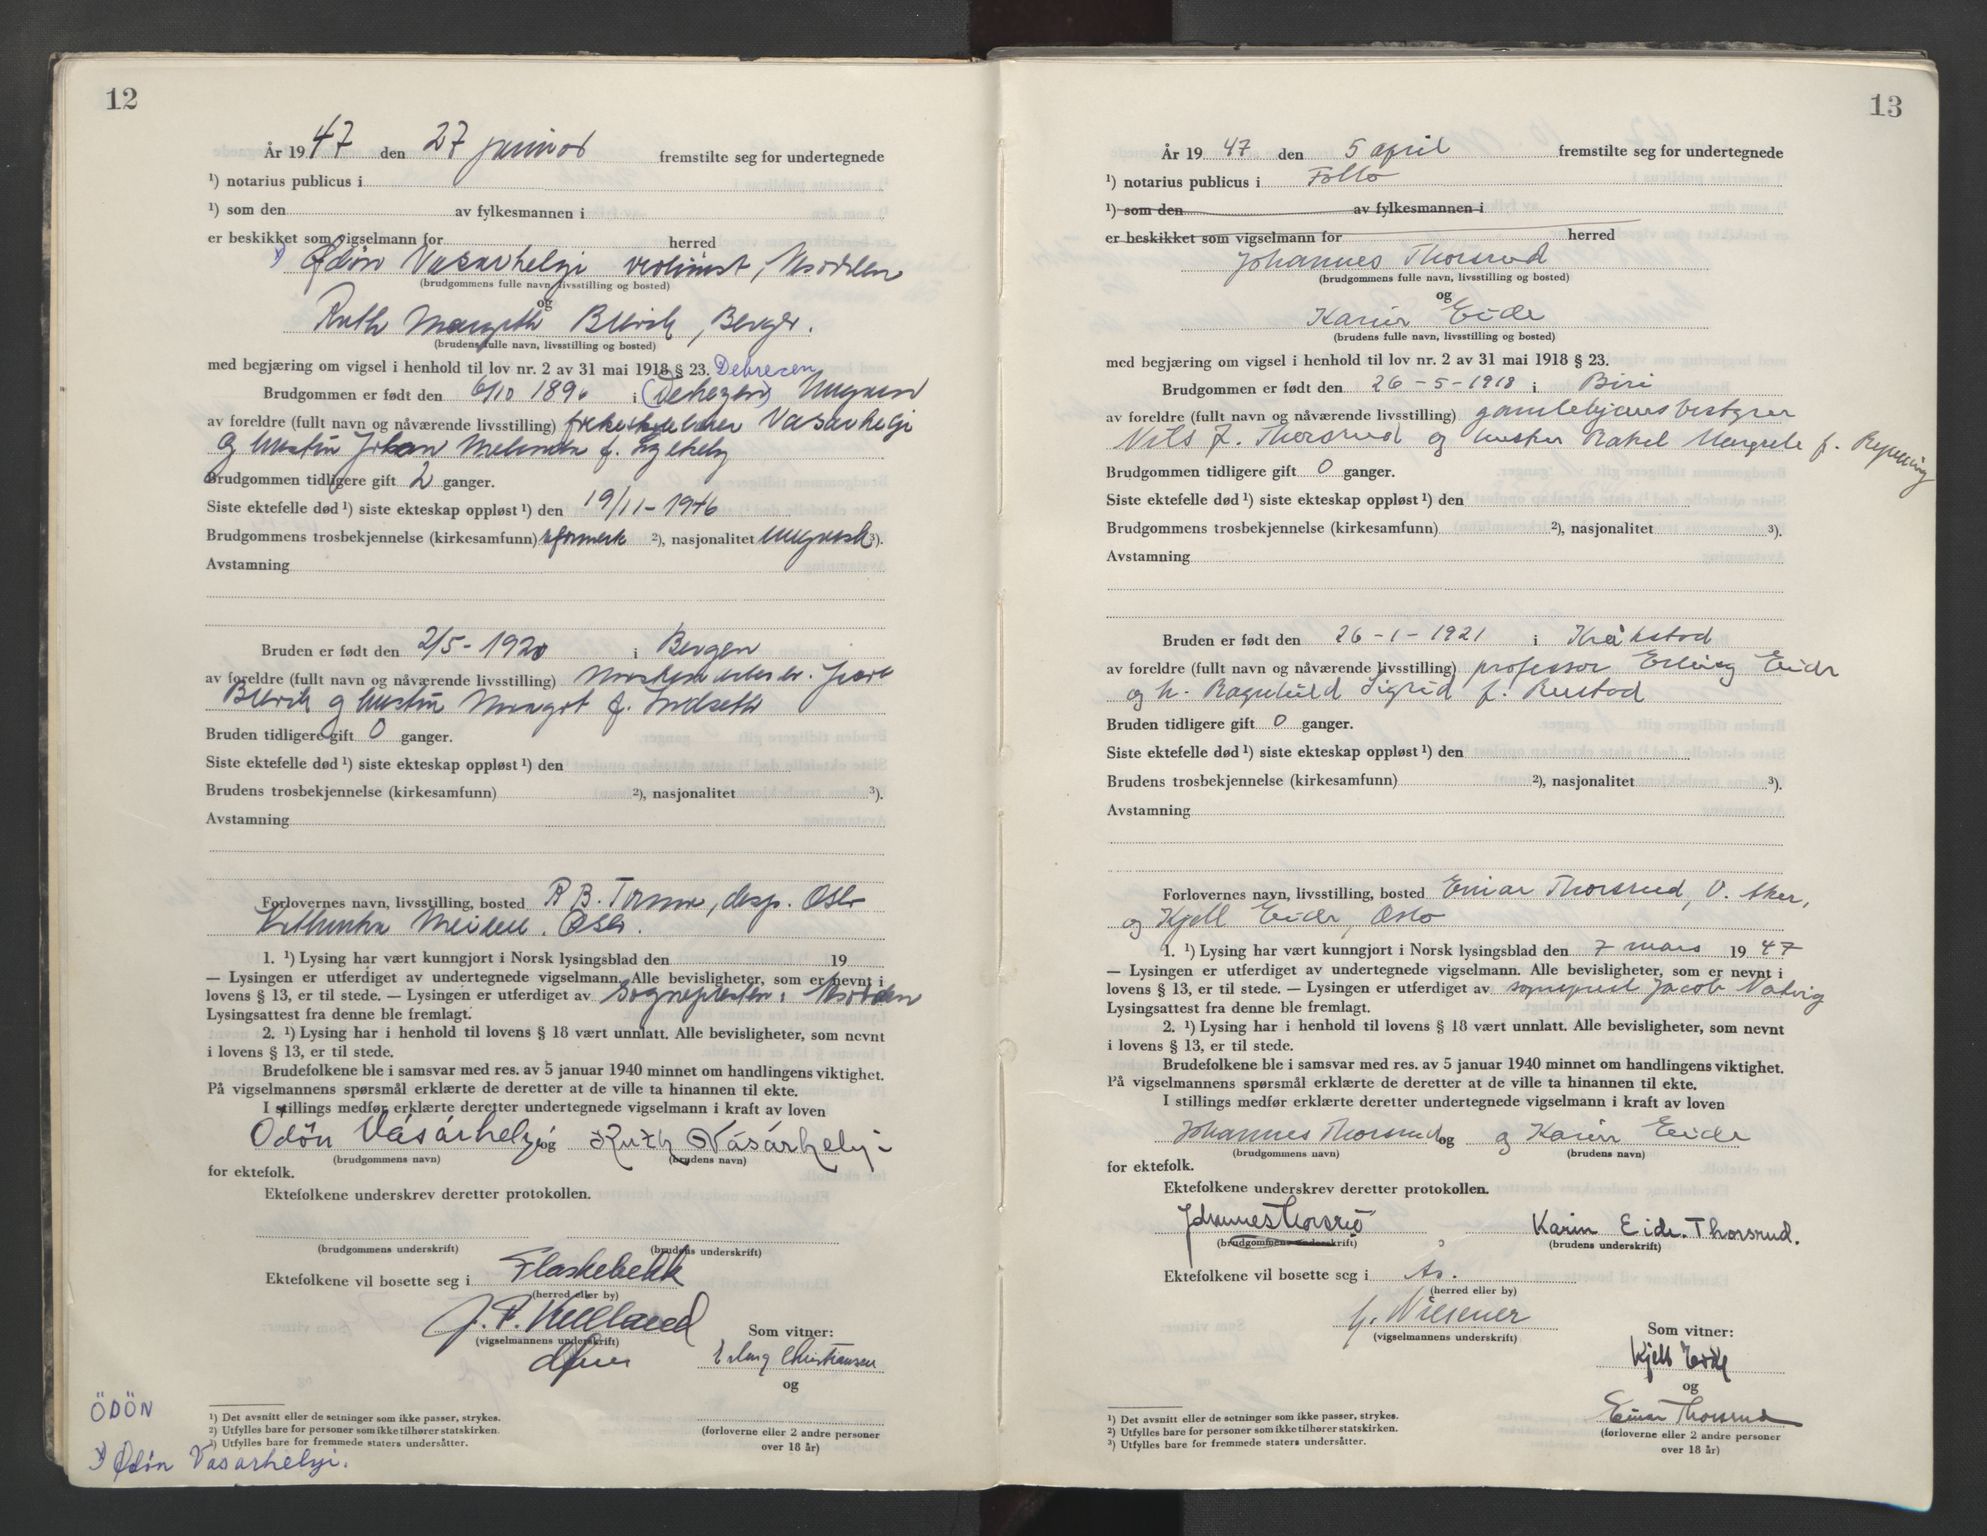 12
År 19 47 den 27 januar fremstilte seg for undertegnede
¹) notarius publicus i
¹) som den av fylkesmannen i
er beskikket som vigselmann for herred
¹) Ødøn Vasarhelyi violinist, Nesodden
(brudgommens fulle navn, livsstilling og bosted)
og
Ruth Margreth Blervik, Bergen.
(brudens fulle navn, livsstilling og bosted)
med begjæring om vigsel i henhold til lov nr. 2 av 31 mai 1918 § 23. Debrecen
Brudgommen er født den 6/10 1896 i Ungarn
av foreldre (fullt navn og nåværende livsstilling) Vasarhelyi
og hustru Melinda f.
Brudgommen tidligere gift 2 ganger.
Siste ektefelle død ¹) siste ekteskap oppløst ¹) den 19/11-1946
Brudgommens trosbekjennelse (kirkesamfunn) reformert ²), nasjonalitet ungarsk ³).
Avstamning
Bruden er født den 2/5-1920 i Bergen
av foreldre (fullt navn og nåværende livsstilling)
Blervik og hustru Margot f. Indseth
Bruden tidligere gift 0 ganger.
Siste ektefelle død ¹) siste ekteskap oppløst ¹) den
Brudens trosbekjennelse (kirkesamfunn) ²), nasjonalitet ³).
Avstamning
Forlovernes navn, livsstilling, bosted R B. disp. Oslo
Oslo.
1. ¹) Lysing har vært kunngjort i Norsk lysingsblad den 19
— Lysingen er utferdiget av undertegnede vigselmann. Alle bevisligheter, som er nevnt i
lovens § 13, er til stede. — Lysingen er utferdiget av Sognepresten i Nesodden
Lysingsattest fra denne ble fremlagt.
2. ¹) Lysing har i henhold til lovens § 18 vært unnlatt. Alle bevisligheter, som nevnt
i lovens § 13, er til stede.
Brudefolkene ble i samsvar med res. av 5 januar 1940 minnet om handlingens viktighet.
På vigselmannens spørsmål erklærte de deretter at de ville ta hinannen til ekte.
I stillings medfør erklærte deretter undertegnede vigselmann i kraft av loven
Ödön Vásárhelyi og Ruth Vásárhelyi
(brudgommens navn) (brudens navn)
for ektefolk.
Ektefolkene underskrev deretter protokollen.
(brudgommens underskrift) (brudens underskrift)
Ektefolkene vil bosette seg i Flaskebekk
(herred eller by)
J. P. Kielland
(vigselmannens underskrift)
Som vitner:
Erling Christiansen
og
(forloverne eller 2 andre personer
over 18 år)
ÖDÖN
¹) Det avsnitt eller de setninger som ikke passer, strykes.
²) Utfylles bare for personer som ikke tilhører statskirken.
³) Utfylles bare for fremmede staters undersåtter.
¹) Ødøn Vasarhelyi.
13
År 19 47 den 5 april fremstilte seg for undertegnede
¹) notarius publicus i Follo
¹) som den av fylkesmannen i
er beskikket som vigselmann for herred
Johannes Thorsrud
(brudgommens fulle navn, livsstilling og bosted)
og
Karin Eide
(brudens fulle navn, livsstilling og bosted)
med begjæring om vigsel i henhold til lov nr. 2 av 31 mai 1918 § 23.
Brudgommen er født den 26-5-1918 i Biri
av foreldre (fullt navn og nåværende livsstilling) gamlehjemsbestyrer
Nils J. Thorsrud og hustru Rakel Margrete f.
Brudgommen tidligere gift 0 ganger.
Siste ektefelle død ¹) siste ekteskap oppløst ¹) den
Brudgommens trosbekjennelse (kirkesamfunn) ²), nasjonalitet ³).
Avstamning
Bruden er født den 26-1-1921 i Kråkstad
av foreldre (fullt navn og nåværende livsstilling) professor Erling Eide
og h. Ragnhild Sigrid f. Rustad
Bruden tidligere gift 0 ganger.
Siste ektefelle død ¹) siste ekteskap oppløst ¹) den
Brudens trosbekjennelse (kirkesamfunn) ²), nasjonalitet ³).
Avstamning
Forlovernes navn, livsstilling, bosted Einar Thorsrud, V. Aker,
og Kjell Eide, Oslo
1. ¹) Lysing har vært kunngjort i Norsk lysingsblad den 7 mars 19 47
— Lysingen er utferdiget av undertegnede vigselmann. Alle bevisligheter, som er nevnt i
lovens § 13, er til stede. — Lysingen er utferdiget av sogneprest Jacob Natvig
Lysingsattest fra denne ble fremlagt.
2. ¹) Lysing har i henhold til lovens § 18 vært unnlatt. Alle bevisligheter, som nevnt
i lovens § 13, er til stede.
Brudefolkene ble i samsvar med res. av 5 januar 1940 minnet om handlingens viktighet.
På vigselmannens spørsmål erklærte de deretter at de ville ta hinannen til ekte.
I stillings medfør erklærte deretter undertegnede vigselmann i kraft av loven
Johannes Thorsrud og og Karin Eide
(brudgommens navn) (brudens navn)
for ektefolk.
Ektefolkene underskrev deretter protokollen.
Johannes Thorsrud Karin Eide. Thorsrud.
(brudgommens underskrift) (brudens underskrift)
Ektefolkene vil bosette seg i Ås.
(herred eller by)
(vigselmannens underskrift)
Som vitner:
Kjell Eide
og
Einar Thorsrud
(forloverne eller 2 andre personer
over 18 år)
¹) Det avsnitt eller de setninger som ikke passer, strykes.
²) Utfylles bare for personer som ikke tilhører statskirken.
³) Utfylles bare for fremmede staters undersåtter.